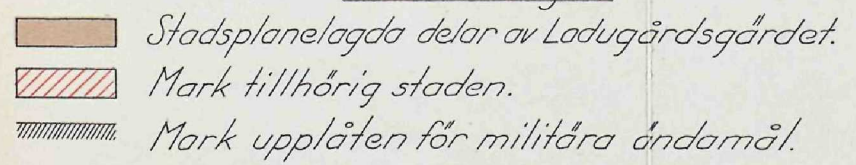 Stadsplanelagda delar av Ladugårdsgärdet.
Mark tillhörig staden.
Mark upplåten för militära ändamål.